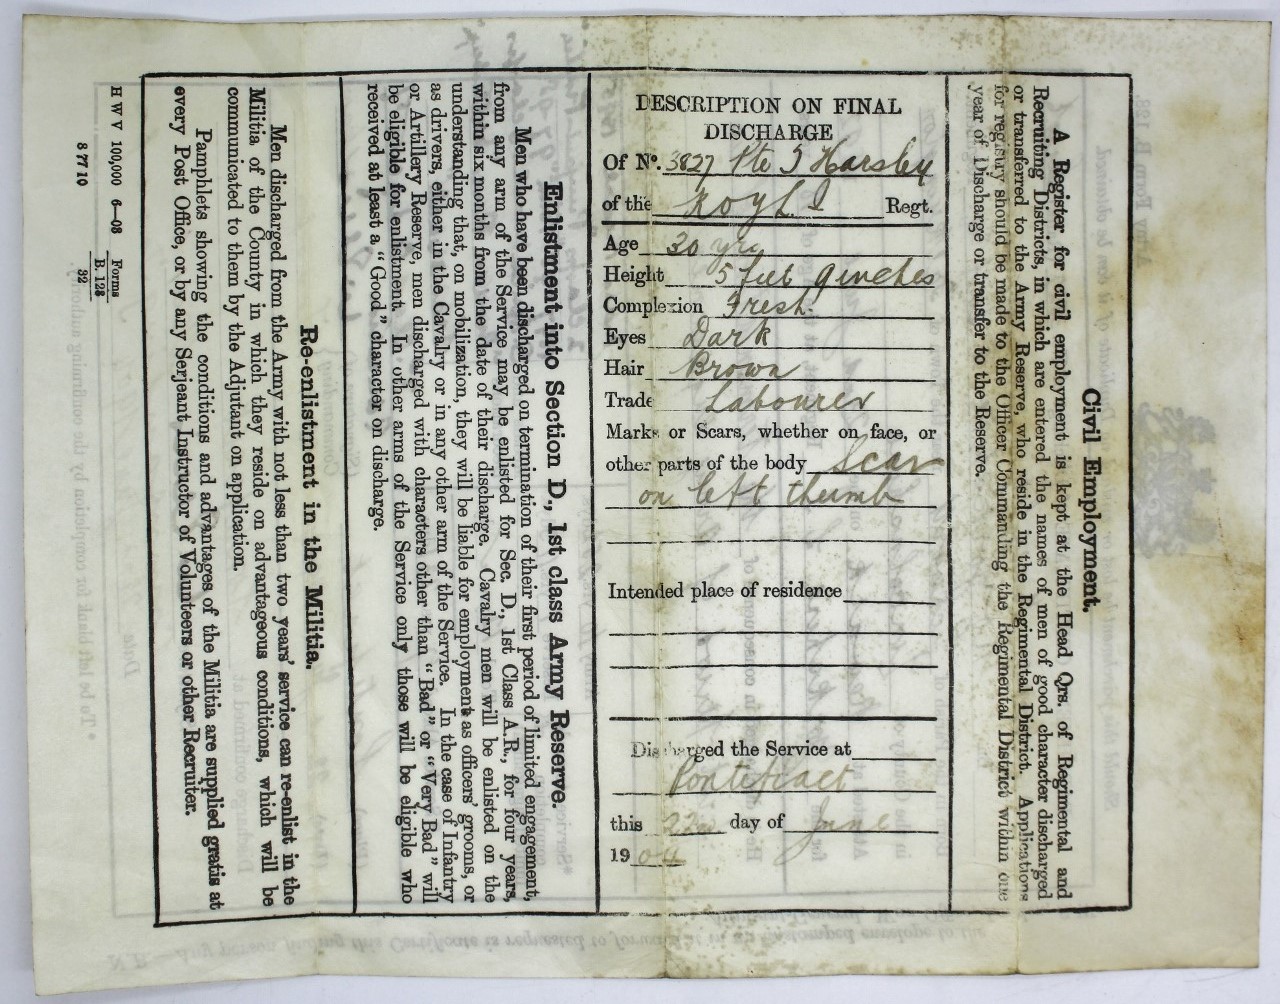 DESCRIPTION ON FINAL
DISCHARGE
Of No. 3827 Pte J Harsley
of the KOYL.I Regt.
Age 30 yrs
Height 5 feet 9 inches
Complexion Fresh.
Eyes Dark
Hair Brown
Trade Labourer
Marks or Scars, whether on face, or
other parts of the body Scar
on left thumb
Intended place of residence
Discharged the Service at
Pontefract
this 22nd day of June
19 04
Civil Employment.
A Register for civil employment is kept at the Head Qrs. of Regimental and
Recruiting Districts, in which are entered the names of men of good character discharged
or transferred to the Army Reserve, who reside in the Regimental District. Applications
for registry should be made to the Officer Commanding the Regimental District within one
year of Discharge or transfer to the Reserve.
Enlistment into Section D., 1st class Army Reserve.
Men who have been discharged on termination of their first period of limited engagement,
from any arm of the Service, may be enlisted for Sec. D., 1st Class A.R., for four years,
within six months from the date of their discharge. Cavalry men will be enlisted on the
understanding that, on mobilization, they will be liable for employment as officers' grooms, or
as drivers, either in the Cavalry or in any other arm of the Service. In the case of Infantry
or Artillery Reserve, men discharged with characters other than "Bad" or "Very Bad" will
be eligible for enlistment. In other arms of the Service only those will be eligible who
received at least a "Good" character on discharge.
Re-enlistment in the Militia.
Men discharged from the Army with not less than two years' service can re-enlist in the
Militia of the County in which they reside on advantageous conditions, which will be
communicated to them by the Adjutant on application.
Pamphlets showing the conditions and advantages of the Militia are supplied gratis at
every Post Office, or by any Serjeant Instructor of Volunteers or other Recruiter.
H W V 100,000 6—03 Forms
B. 128
32
8 77 10